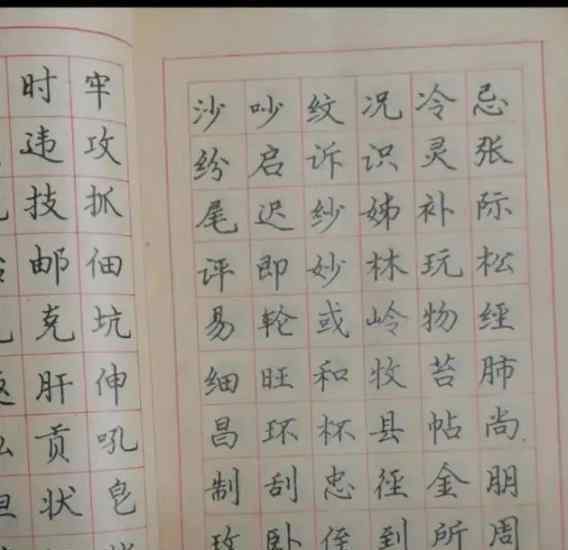 时牢
违攻
技抓
邮佃
克坑
肝伸
贡吼
状皂
沙吵纹况冷忌
纷启诉识灵张
尾迟纱姊补际
评即妙林玩松
易轮或岭物经
细旺和牧苔肺
昌环杯县帖尚
制刮忠径金朋
玫卧侄到所周